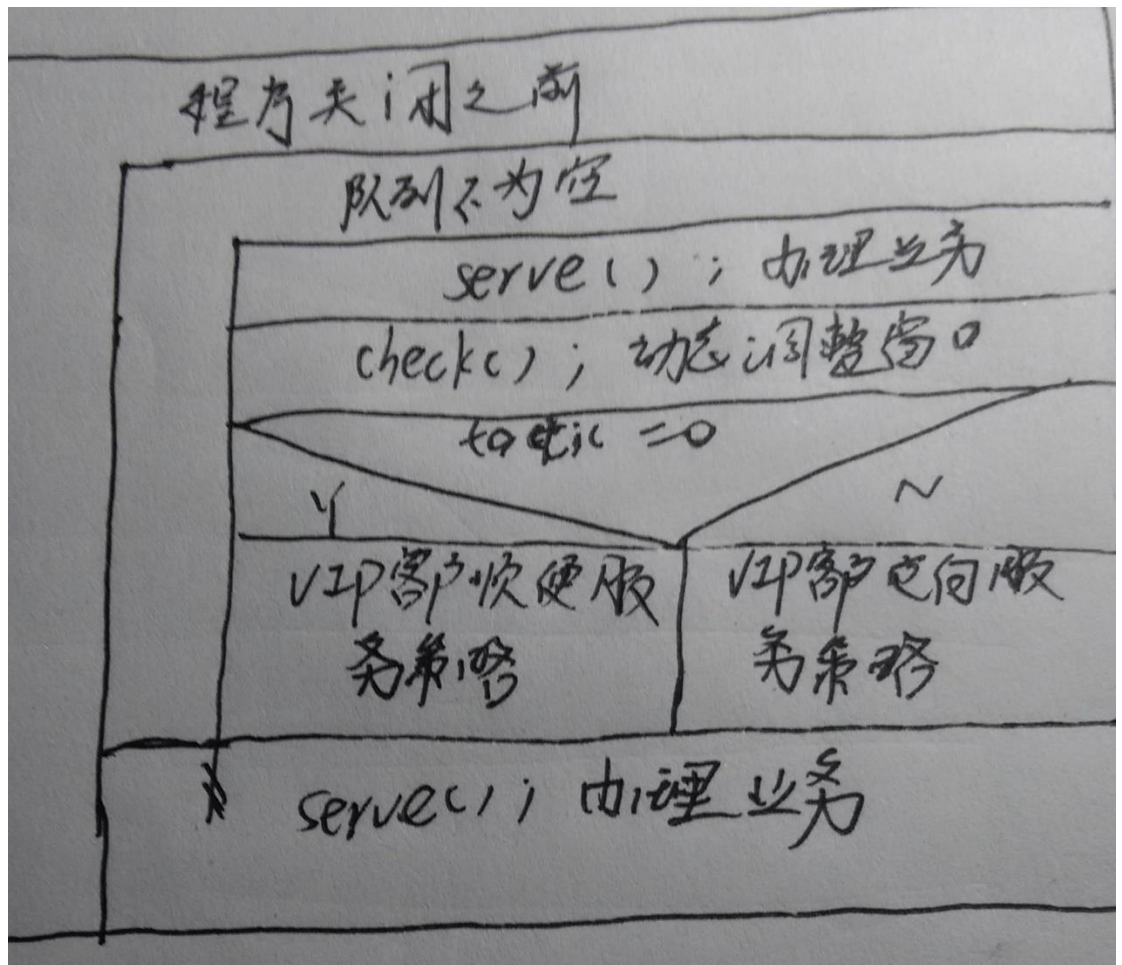 程序关闭之前
队列不为空
serve(); 办理业务
check(); 动态调整窗口
tactic =0
Y N
VIP客户顺便服 VIP客户定向服
务策略 务策略
serve(); 办理业务